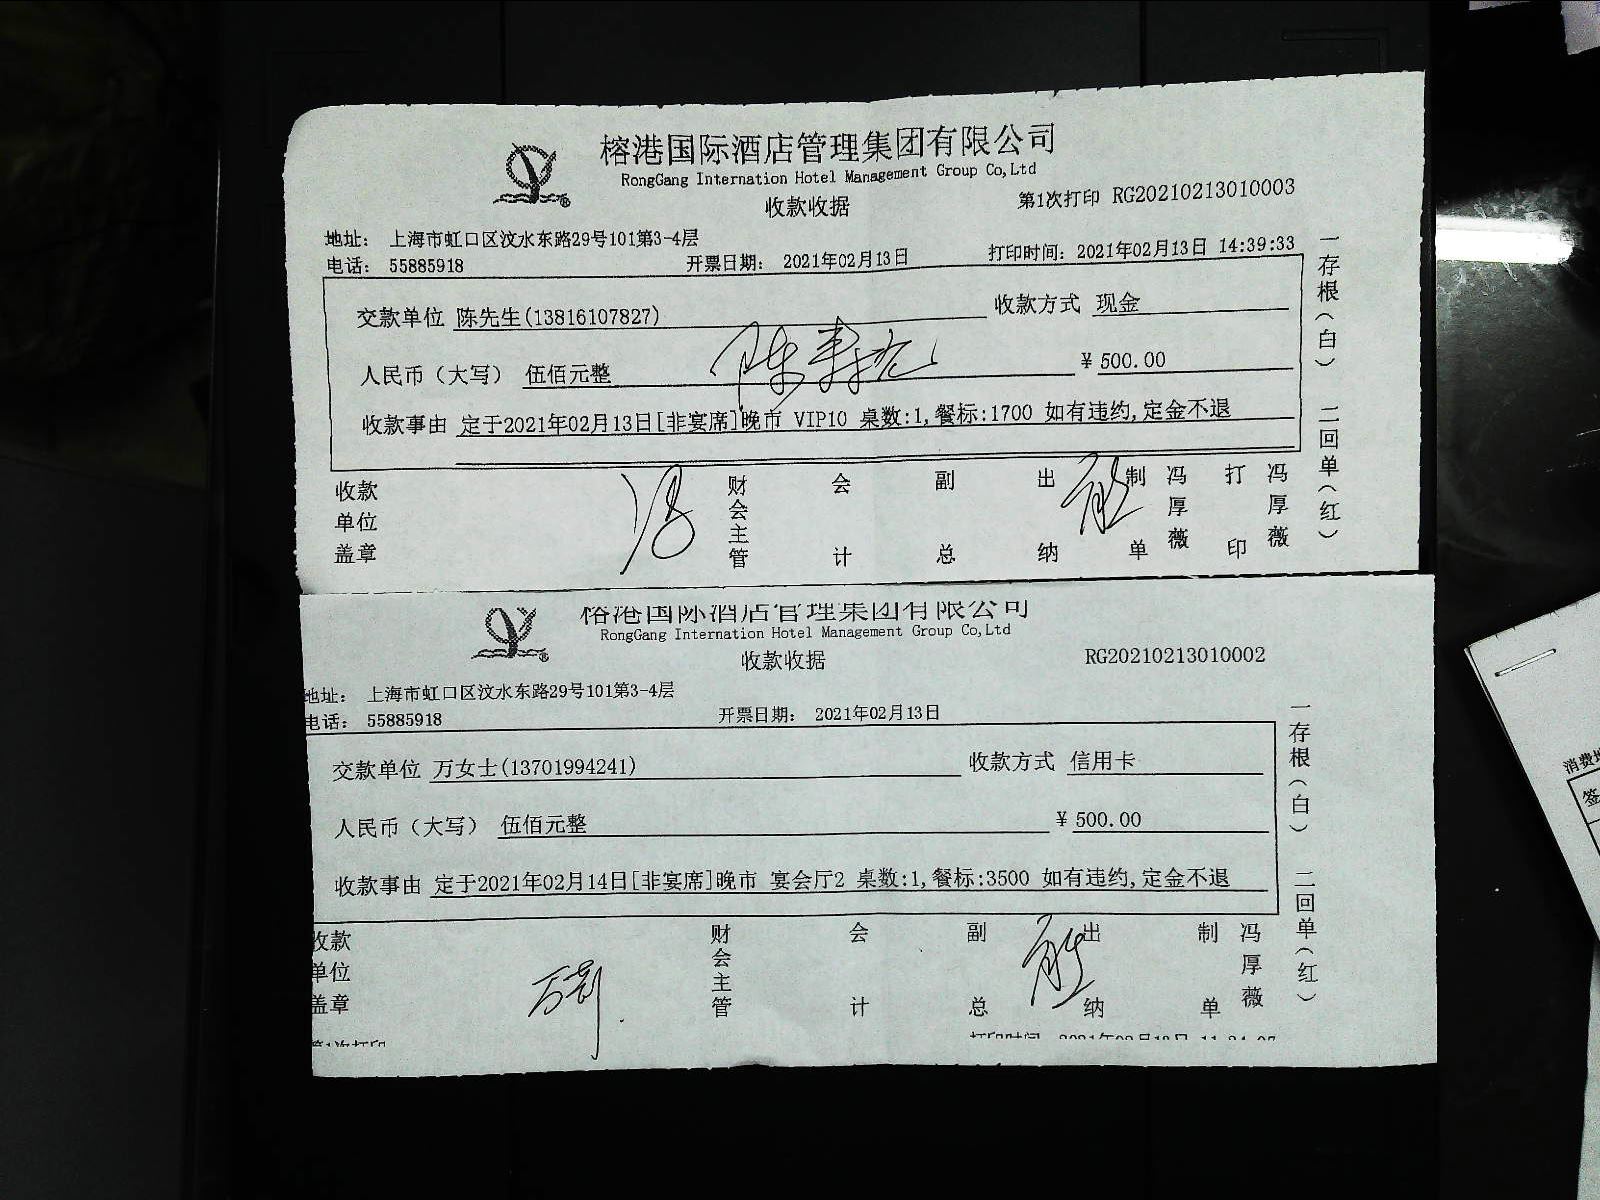 榕港国际酒店管理集团有限公司
RongGang Internation Hotel Management Group Co,Ltd
收款收据
第1次打印 RG20210213010003
地址： 上海市虹口区汶水东路29号101第3-4层
电话： 55885918 开票日期： 2021年02月13日 打印时间：2021年02月13日 14:39:33
交款单位 陈先生(13816107827) 收款方式 现金
人民币（大写） 伍佰元整 ￥500.00
收款事由 定于2021年02月13日[非宴席]晚市 VIP10 桌数:1,餐标:1700 如有违约,定金不退
收款单位盖章 财会主管 会计 副总 出纳 制单 冯厚薇 打印 冯厚薇
一存根（白） 二回单（红）
榕港国际酒店管理集团有限公司
RongGang Internation Hotel Management Group Co,Ltd
收款收据
RG20210213010002
地址： 上海市虹口区汶水东路29号101第3-4层
电话： 55885918 开票日期： 2021年02月13日
交款单位 万女士(13701994241) 收款方式 信用卡
人民币（大写） 伍佰元整 ￥500.00
收款事由 定于2021年02月14日[非宴席]晚市 宴会厅2 桌数:1,餐标:3500 如有违约,定金不退
收款单位盖章 财会主管 会计 副总 出纳 制单 冯厚薇
一存根（白） 二回单（红）
第1次打印 打印时间
消费
签